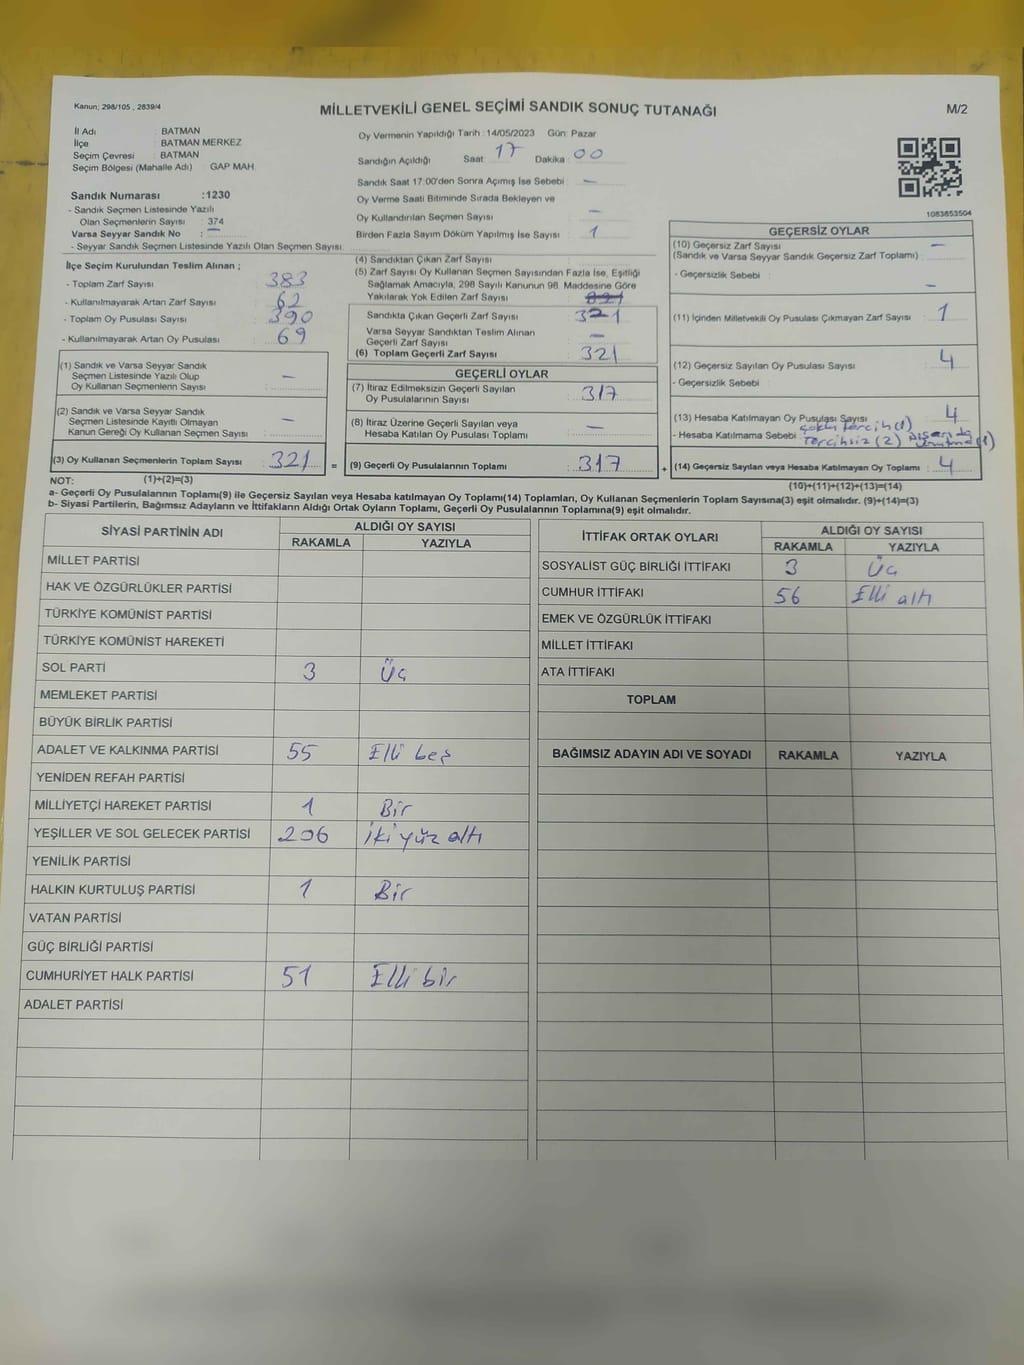 Kanun; 298/105 , 2839/4
MİLLETVEKİLİ GENEL SEÇİMİ SANDIK SONUÇ TUTANAĞI
M/2
İl Adı : BATMAN
İlçe : BATMAN MERKEZ
Seçim Çevresi : BATMAN
Seçim Bölgesi (Mahalle Adı) : GAP MAH.
Sandık Numarası :1230
- Sandık Seçmen Listesinde Yazılı
Olan Seçmenlerin Sayısı : 374
Varsa Seyyar Sandık No : —
- Seyyar Sandık Seçmen Listesinde Yazılı Olan Seçmen Sayısı:
Oy Vermenin Yapıldığı Tarih :14/05/2023 Gün: Pazar
Sandığın Açıldığı Saat: 17 Dakika : 00
Sandık Saat 17:00'den Sonra Açımış İse Sebebi : —
Oy Verme Saati Bitiminde Sırada Bekleyen ve
Oy Kullandırılan Seçmen Sayısı : —
Birden Fazla Sayım Döküm Yapılmış İse Sayısı : 1
1083853504
İlçe Seçim Kurulundan Teslim Alınan ;
- Toplam Zarf Sayısı : 383
- Kullanılmayarak Artan Zarf Sayısı : 62
- Toplam Oy Pusulası Sayısı : 390
- Kullanılmayarak Artan Oy Pusulası : 69
(1) Sandık ve Varsa Seyyar Sandık
Seçmen Listesinde Yazılı Olup
Oy Kullanan Seçmenlerin Sayısı : —
(2) Sandık ve Varsa Seyyar Sandık
Seçmen Listesinde Kayıtlı Olmayan
Kanun Gereği Oy Kullanan Seçmen Sayısı : —
(3) Oy Kullanan Seçmenlerin Toplam Sayısı : 321
(4) Sandıktan Çıkan Zarf Sayısı :
(5) Zarf Sayısı Oy Kullanan Seçmen Sayısından Fazla İse, Eşitliği
Sağlamak Amacıyla, 298 Sayılı Kanunun 98. Maddesine Göre
Yakılarak Yok Edilen Zarf Sayısı :
Sandıkta Çıkan Geçerli Zarf Sayısı : 321
Varsa Seyyar Sandıktan Teslim Alınan
Geçerli Zarf Sayısı : —
(6) Toplam Geçerli Zarf Sayısı : 321
GEÇERLİ OYLAR
(7) İtiraz Edilmeksizin Geçerli Sayılan
Oy Pusulalarının Sayısı : 317
(8) İtiraz Üzerine Geçerli Sayılan veya
Hesaba Katılan Oy Pusulası Toplamı : —
= (9) Geçerli Oy Pusulalarının Toplamı : 317
GEÇERSİZ OYLAR
(10) Geçersiz Zarf Sayısı : —
(Sandık ve Varsa Seyyar Sandık Geçersiz Zarf Toplamı)
- Geçersizlik Sebebi : —
(11) İçinden Milletvekili Oy Pusulası Çıkmayan Zarf Sayısı : 1
(12) Geçersiz Sayılan Oy Pusulası Sayısı : 4
- Geçersizlik Sebebi :
(13) Hesaba Katılmayan Oy Pusulası Sayısı : 4
- Hesaba Katılmama Sebebi : çoklu tercih(1)
tercihsiz (2) (1)
+ (14) Geçersiz Sayılan veya Hesaba Katılmayan Oy Toplamı : 4
NOT: (1)+(2)=(3)
(10)+(11)+(12)+(13)=(14)
a- Geçerli Oy Pusulalarının Toplamı(9) ile Geçersiz Sayılan veya Hesaba katılmayan Oy Toplamı(14) Toplamları, Oy Kullanan Seçmenlerin Toplam Sayısına(3) eşit olmalıdır. (9)+(14)=(3)
b- Siyasi Partilerin, Bağımsız Adayların ve İttifakların Aldığı Ortak Oyların Toplamı, Geçerli Oy Pusulalarının Toplamına(9) eşit olmalıdır.
SİYASİ PARTİNİN ADI ALDIĞI OY SAYISI
RAKAMLA YAZIYLA
MİLLET PARTİSİ
HAK VE ÖZGÜRLÜKLER PARTİSİ
TÜRKİYE KOMÜNİST PARTİSİ
TÜRKİYE KOMÜNİST HAREKETİ
SOL PARTİ 3 Üç
MEMLEKET PARTİSİ
BÜYÜK BİRLİK PARTİSİ
ADALET VE KALKINMA PARTİSİ 55 Elli beş
YENİDEN REFAH PARTİSİ
MİLLİYETÇİ HAREKET PARTİSİ 1 Bir
YEŞİLLER VE SOL GELECEK PARTİSİ 206 iki yüz altı
YENİLİK PARTİSİ
HALKIN KURTULUŞ PARTİSİ 1 Bir
VATAN PARTİSİ
GÜÇ BİRLİĞİ PARTİSİ
CUMHURİYET HALK PARTİSİ 51 Elli bir
ADALET PARTİSİ
İTTİFAK ORTAK OYLARI ALDIĞI OY SAYISI
RAKAMLA YAZIYLA
SOSYALİST GÜÇ BİRLİĞİ İTTİFAKI 3 Üç
CUMHUR İTTİFAKI 56 Elli altı
EMEK VE ÖZGÜRLÜK İTTİFAKI
MİLLET İTTİFAKI
ATA İTTİFAKI
TOPLAM
BAĞIMSIZ ADAYIN ADI VE SOYADI RAKAMLA YAZIYLA